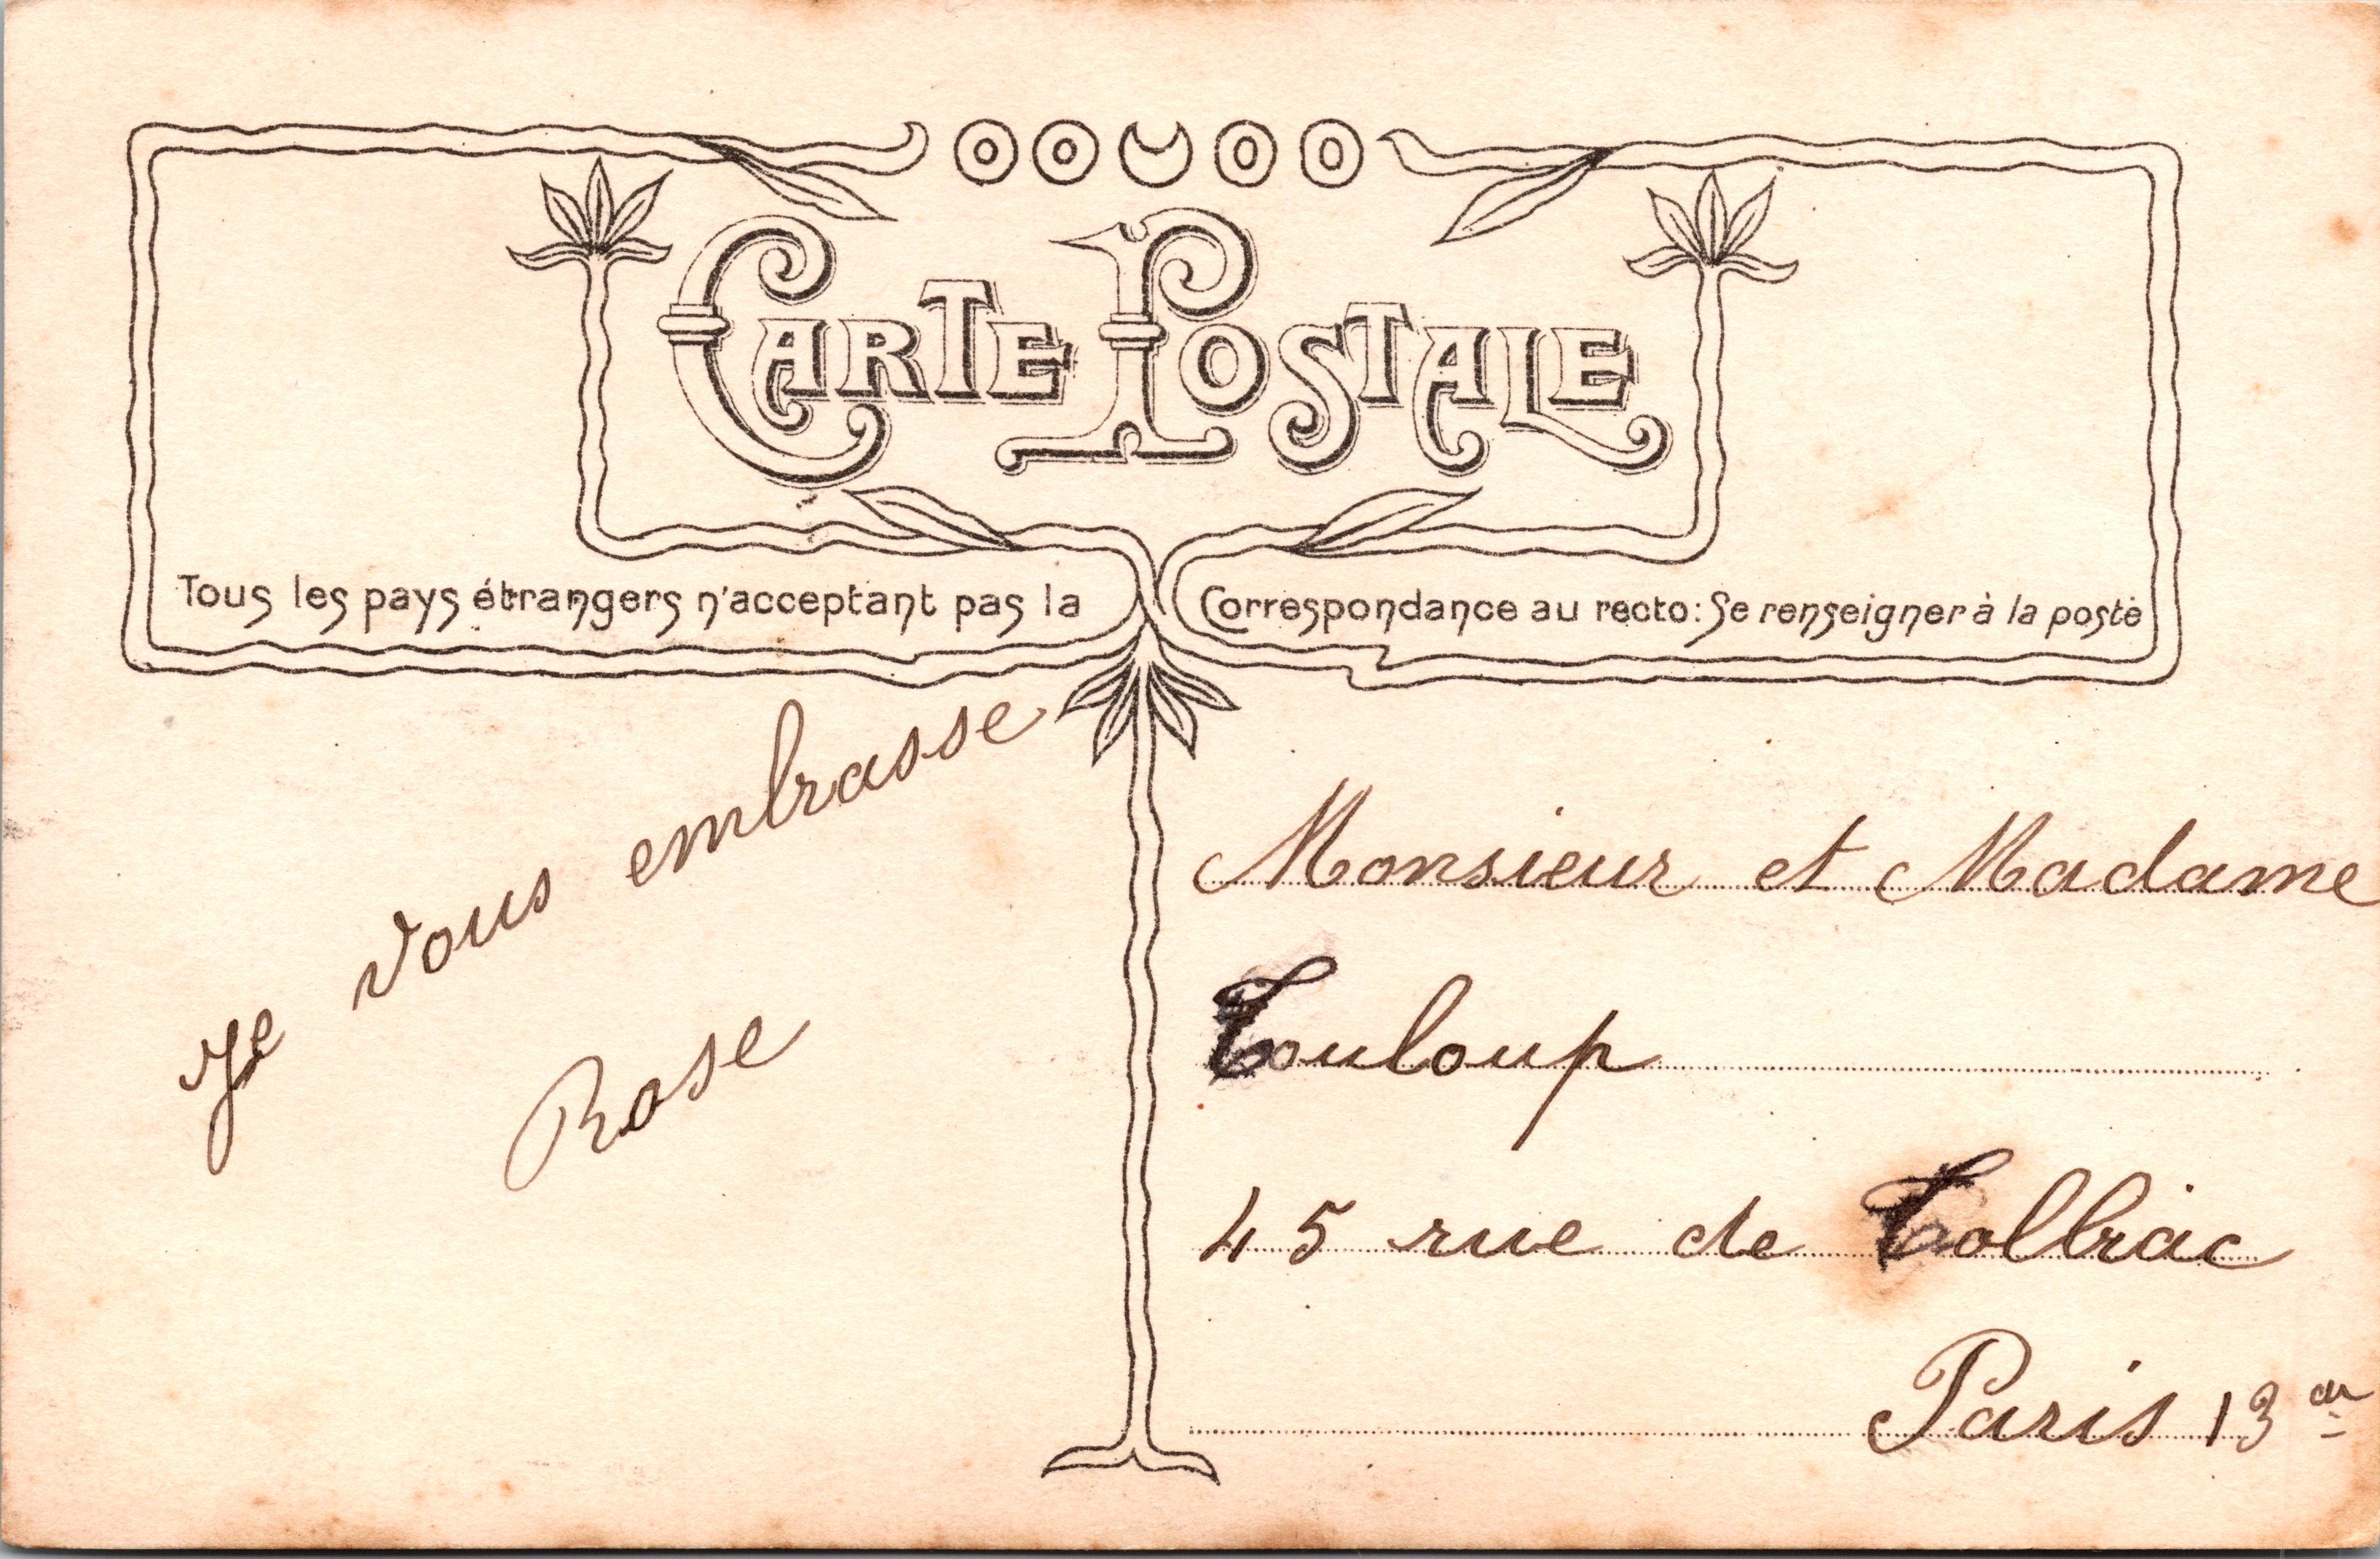 CARTE POSTALE
Tous les pays étrangers n'acceptant pas la Correspondance au recto: Se renseigner à la poste
Je vous embrasse
Rose
Monsieur et Madame
Touloup
45 rue de Tolbiac
Paris 13 ar